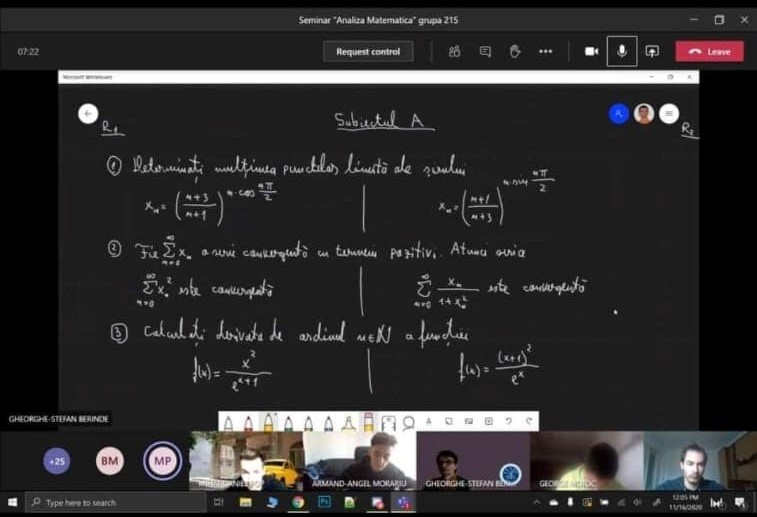 Seminar "Analiza Matematica" grupa 215
07:22
Request control
Leave
Microsoft Whiteboard
R₁
Subiectul A
R₂
① Determinați mulțimea punctelor limită ale șirului
xₙ = ((n+3)/(n+1))^(n·cos nπ/2)
xₙ = ((n+1)/(n+3))^(n·sin nπ/2)
② Fie ∑_{n=0}^{∞} xₙ o serie convergentă cu termeni pozitivi. Atunci seria
∑_{n=0}^{∞} xₙ² este convergentă
∑_{n=0}^{∞} xₙ/(1+xₙ²) este convergentă
③ Calculați derivata de ordinul n∈ℕ a funcției
f(x) = x²/e^(x+1)
f(x) = (x+1)²/e^x
GHEORGHE-STEFAN BERINDE
+25
BM
MP
ARMAND-ANGEL MORARIU
GHEORGHE-STEFAN
GEORGE
Type here to search
12:05 PM
11/16/2020